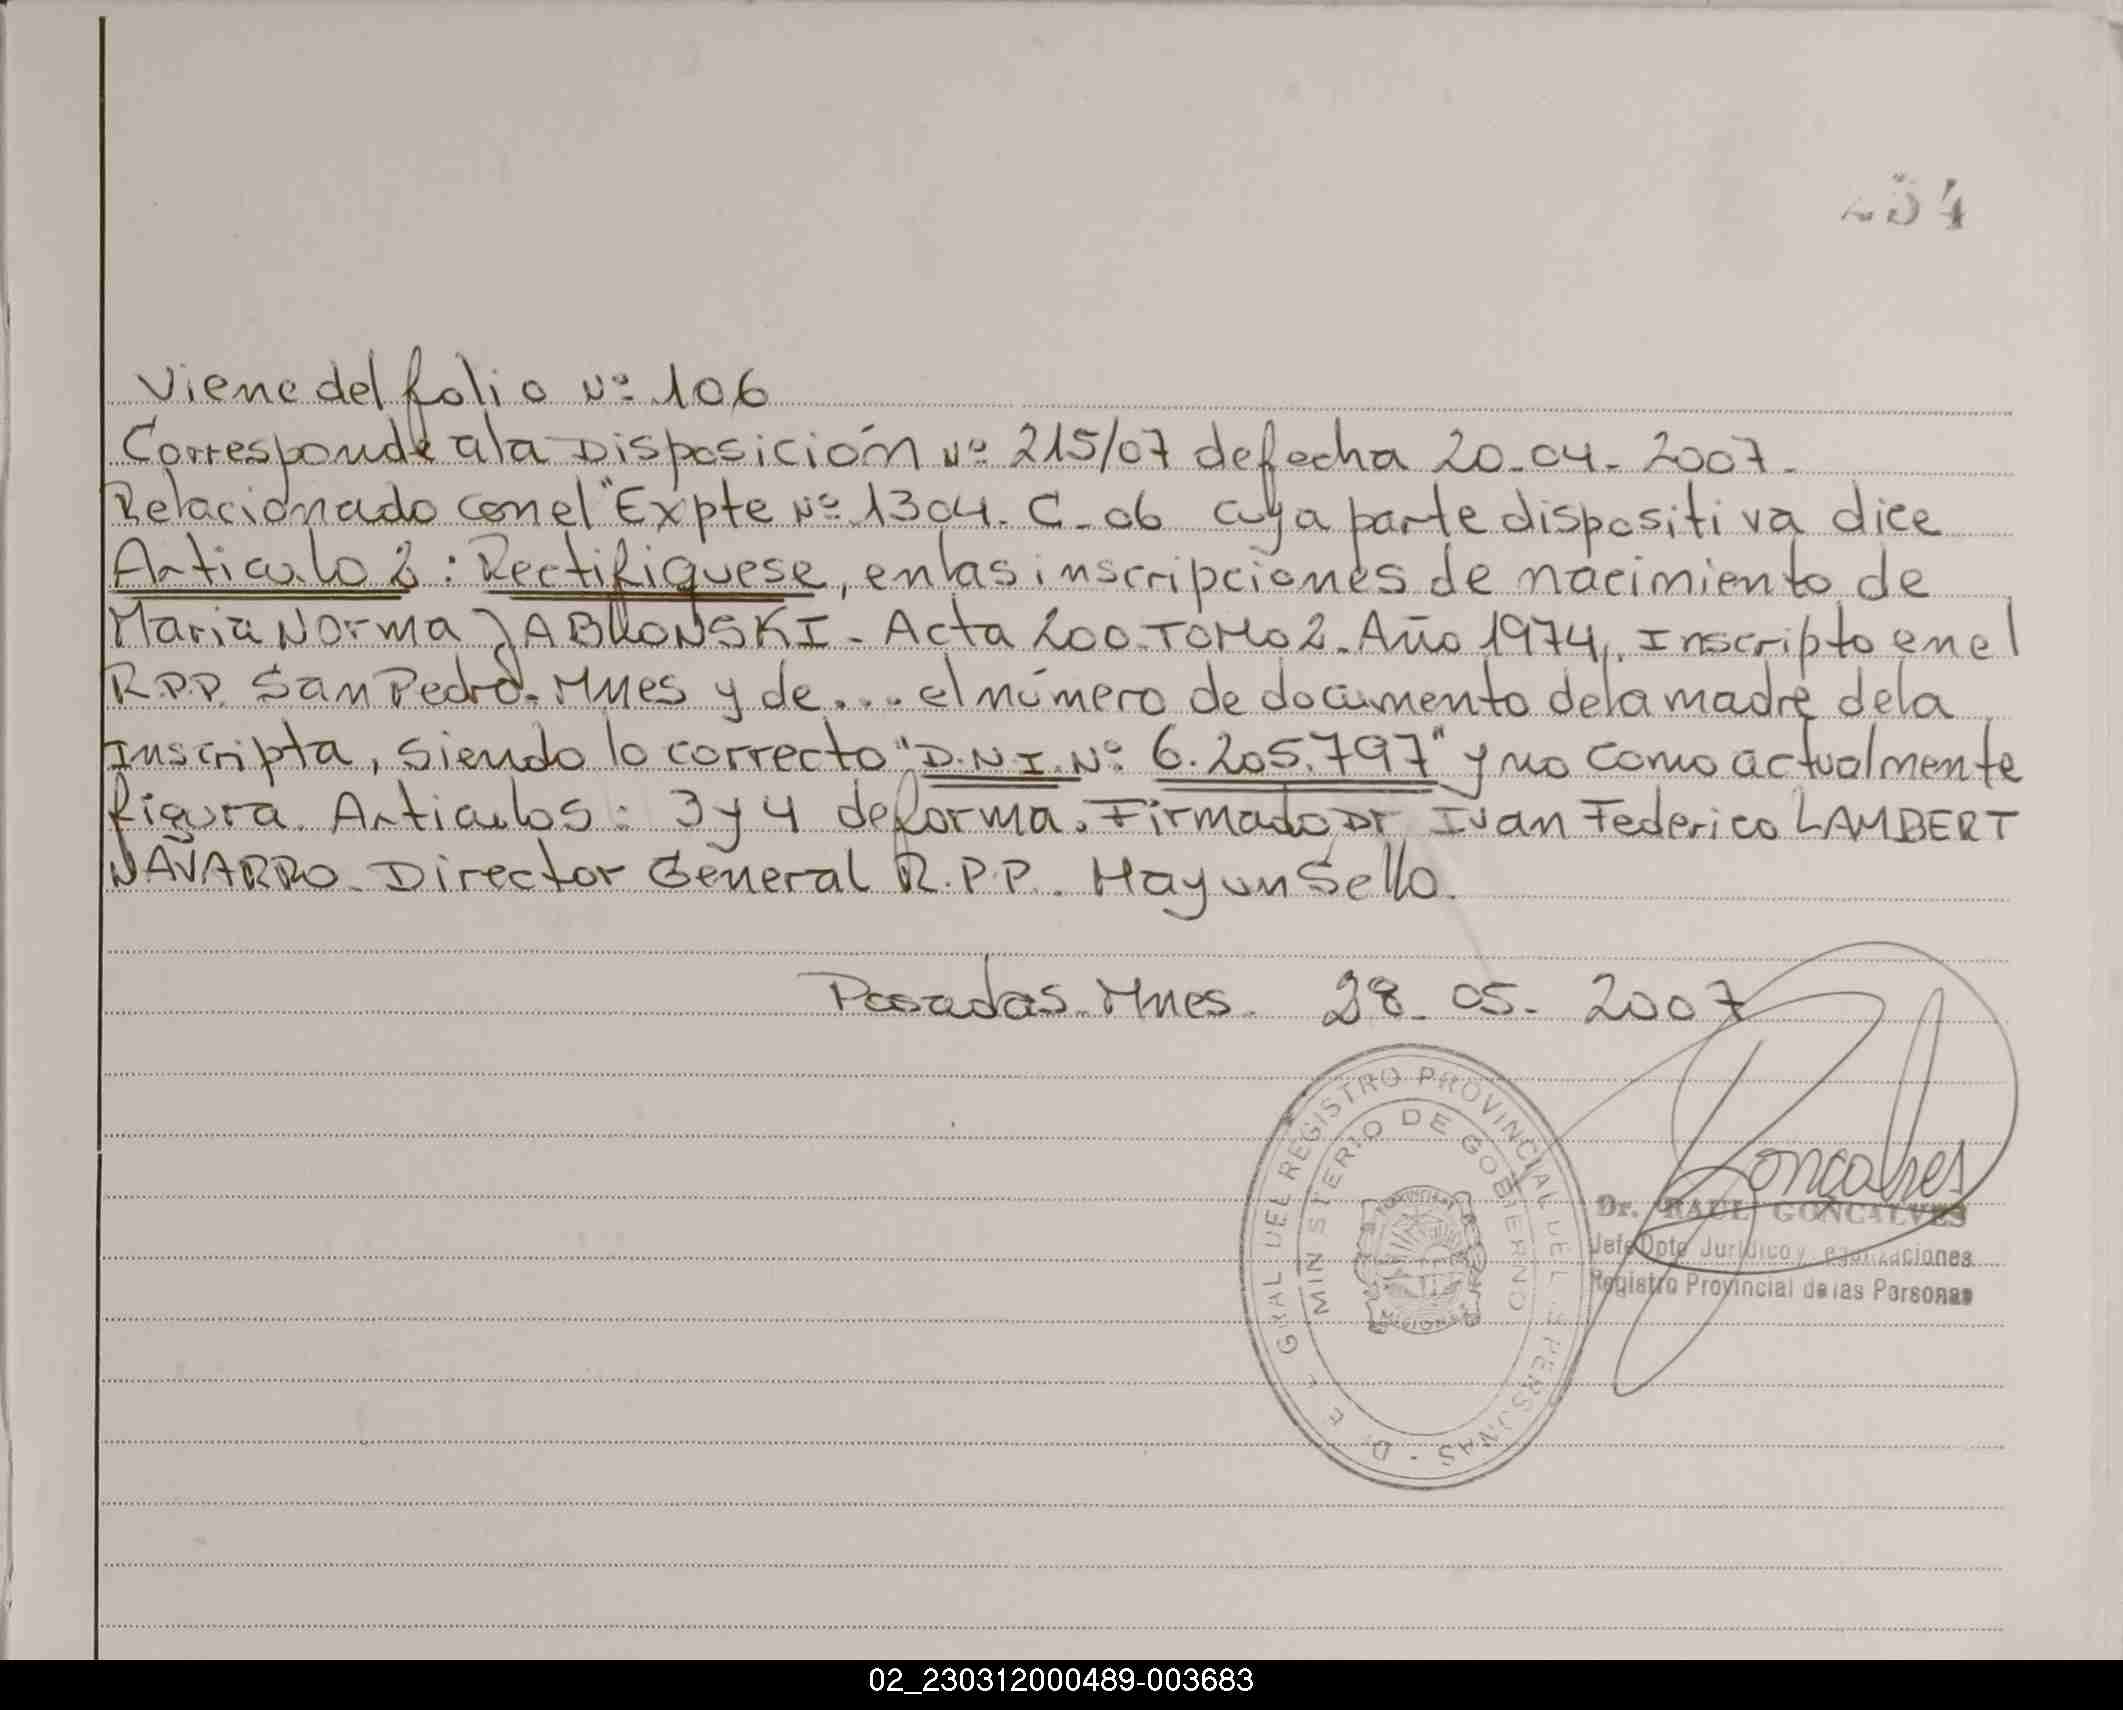 254
Viene del folio Nº 106
Corresponde a la Disposición Nº 215/07 de fecha 20-04-2007-
Relacionado con el "Expte Nº 1304-C-06 cuya parte dispositiva dice
Articulo 2: Rectifiquese, en las inscripciones de nacimiento de
Maria Norma JABLONSKI - Acta 200-TOMO 2-Año 1974, Inscripto en el
R.P.P. San Pedro-Mnes y de.... el número de documento de la madre de la
Inscripta, siendo lo correcto "D.N.I.Nº 6.205.797" y no como actualmente
figura. Articulos: 3 y 4 de forma. Firmado Dr Ivan Federico LAMBERT
NAVARRO-Director General R.P.P. Hay un Sello.
Posadas-Mnes. 28-05-2007
GRAL DEL REGISTRO PROVINCIAL DE LAS PERSONAS
MINISTERIO DE GOBIERNO
Goncalves
Dr. RAUL GONCALVES
Jefe Dpto Jurídico y
Registro Provincial de las Personas
02_230312000489-003683